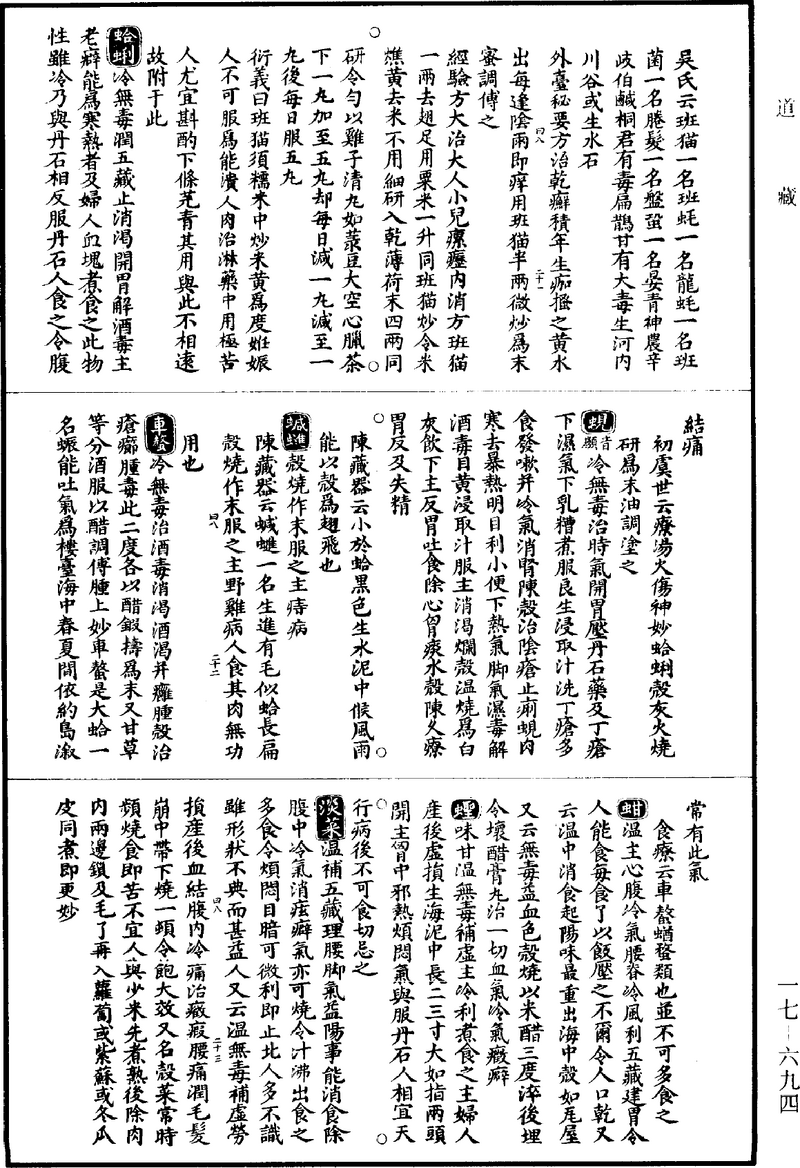 道藏
吳氏云班猫一名班蚝一名龍蚝一名班
菌一名䏰髮一名盤蛩一名晏青神農辛
歧伯鹹桐君有毒扁鵲甘有大毒生河內
川谷或生水石
外臺秘要方治乾癬積年生痂搔之黃水
出每逢陰雨即痒用班猫半兩微炒爲末
蜜調傅之
經驗方大治大人小兒瘰癧內消方班猫
一兩去翅足用粟米一升同班猫炒令米
燋黃去米不用細研入乾薄荷末四兩同
研令勻以雞子清丸如菉豆大空心臘茶
下一丸加至五丸却每日減一丸減至一
丸後每日服五丸
衍義曰班猫須糯米中炒米黃爲度姙娠
人不可服爲能潰人肉治淋藥中用極苦
人尤宜斟酌下條芫青其用與此不相遠
故附于此
蛤蜊冷無毒潤五藏止消渴開胃解酒毒主
老癖能爲寒熱者及婦人血塊煮食之此物
性雖冷乃與丹石相反服丹石人食之令腹
結痛
初虞世云療湯火傷神妙蛤蜊殼灰火燒
研爲末油調塗之
蜆音顯冷無毒治時氣開胃壓丹石藥及丁瘡
下濕氣下乳糟煮服良生浸取汁洗丁瘡多
食發嗽并冷氣消腎陳殼治陰瘡止痢蜆肉
寒去暴熱明目利小便下熱氣脚氣濕毒解
酒毒目黃浸取汁服主消渴爛殼溫燒爲白
灰飲下主反胃吐食除心胷痰水殼陳久療
胃反及失精
陳藏器云小於蛤黑色生水泥中候風雨
能以殼爲翅飛也
蝛䗯殼燒作末服之主痔病
陳藏器云蝛䗯一名生進有毛似蛤長扁
殼燒作末服之主野雞病人食其肉無功
用也
車螯冷無毒治酒毒消渴酒渴并癰腫殼治
瘡癤腫毒此二度各以醋鍛擣爲末又甘草
等分酒服以醋調傅腫上妙車螯是大蛤一
名蜄能吐氣爲樓臺海中春夏間依約島溆
常有此氣
食療云車螯蝤蝥類也並不可多食之
蚶溫主心腹冷氣腰脊冷風利五藏建胃令
人能食每食了以飯壓之不爾令人口乾又
云溫中消食起陽味最重出海中殼如瓦屋
又云無毒益血色殼燒以米醋三度淬後埋
令壞醋膏丸治一切血氣冷氣癥癖
蟶味甘溫無毒補虛主冷利煮食之主婦人
產後虛損生海泥中長二三寸大如指兩頭
開主胷中邪熱煩悶氣與服丹石人相宜天
行病後不可食切忌之
淡菜溫補五藏理腰脚氣益陽事能消食除
腹中冷氣消痃癖氣亦可燒令汁沸出食之
多食令煩悶目暗可微利即止北人多不識
雖形狀不典而甚益人又云溫無毒補虛勞
損產後血結腹內冷痛治癥瘕腰痛潤毛髮
崩中帶下燒一頓令飽大效又名殼菜常時
頻燒食即苦不宜人與少米先煮熟後除肉
內兩邊鎖及毛了再入蘿蔔或紫蘇或冬瓜
皮同煮即更妙
四八
二十一
四八
二十二
四八
二十三
一七-六九四